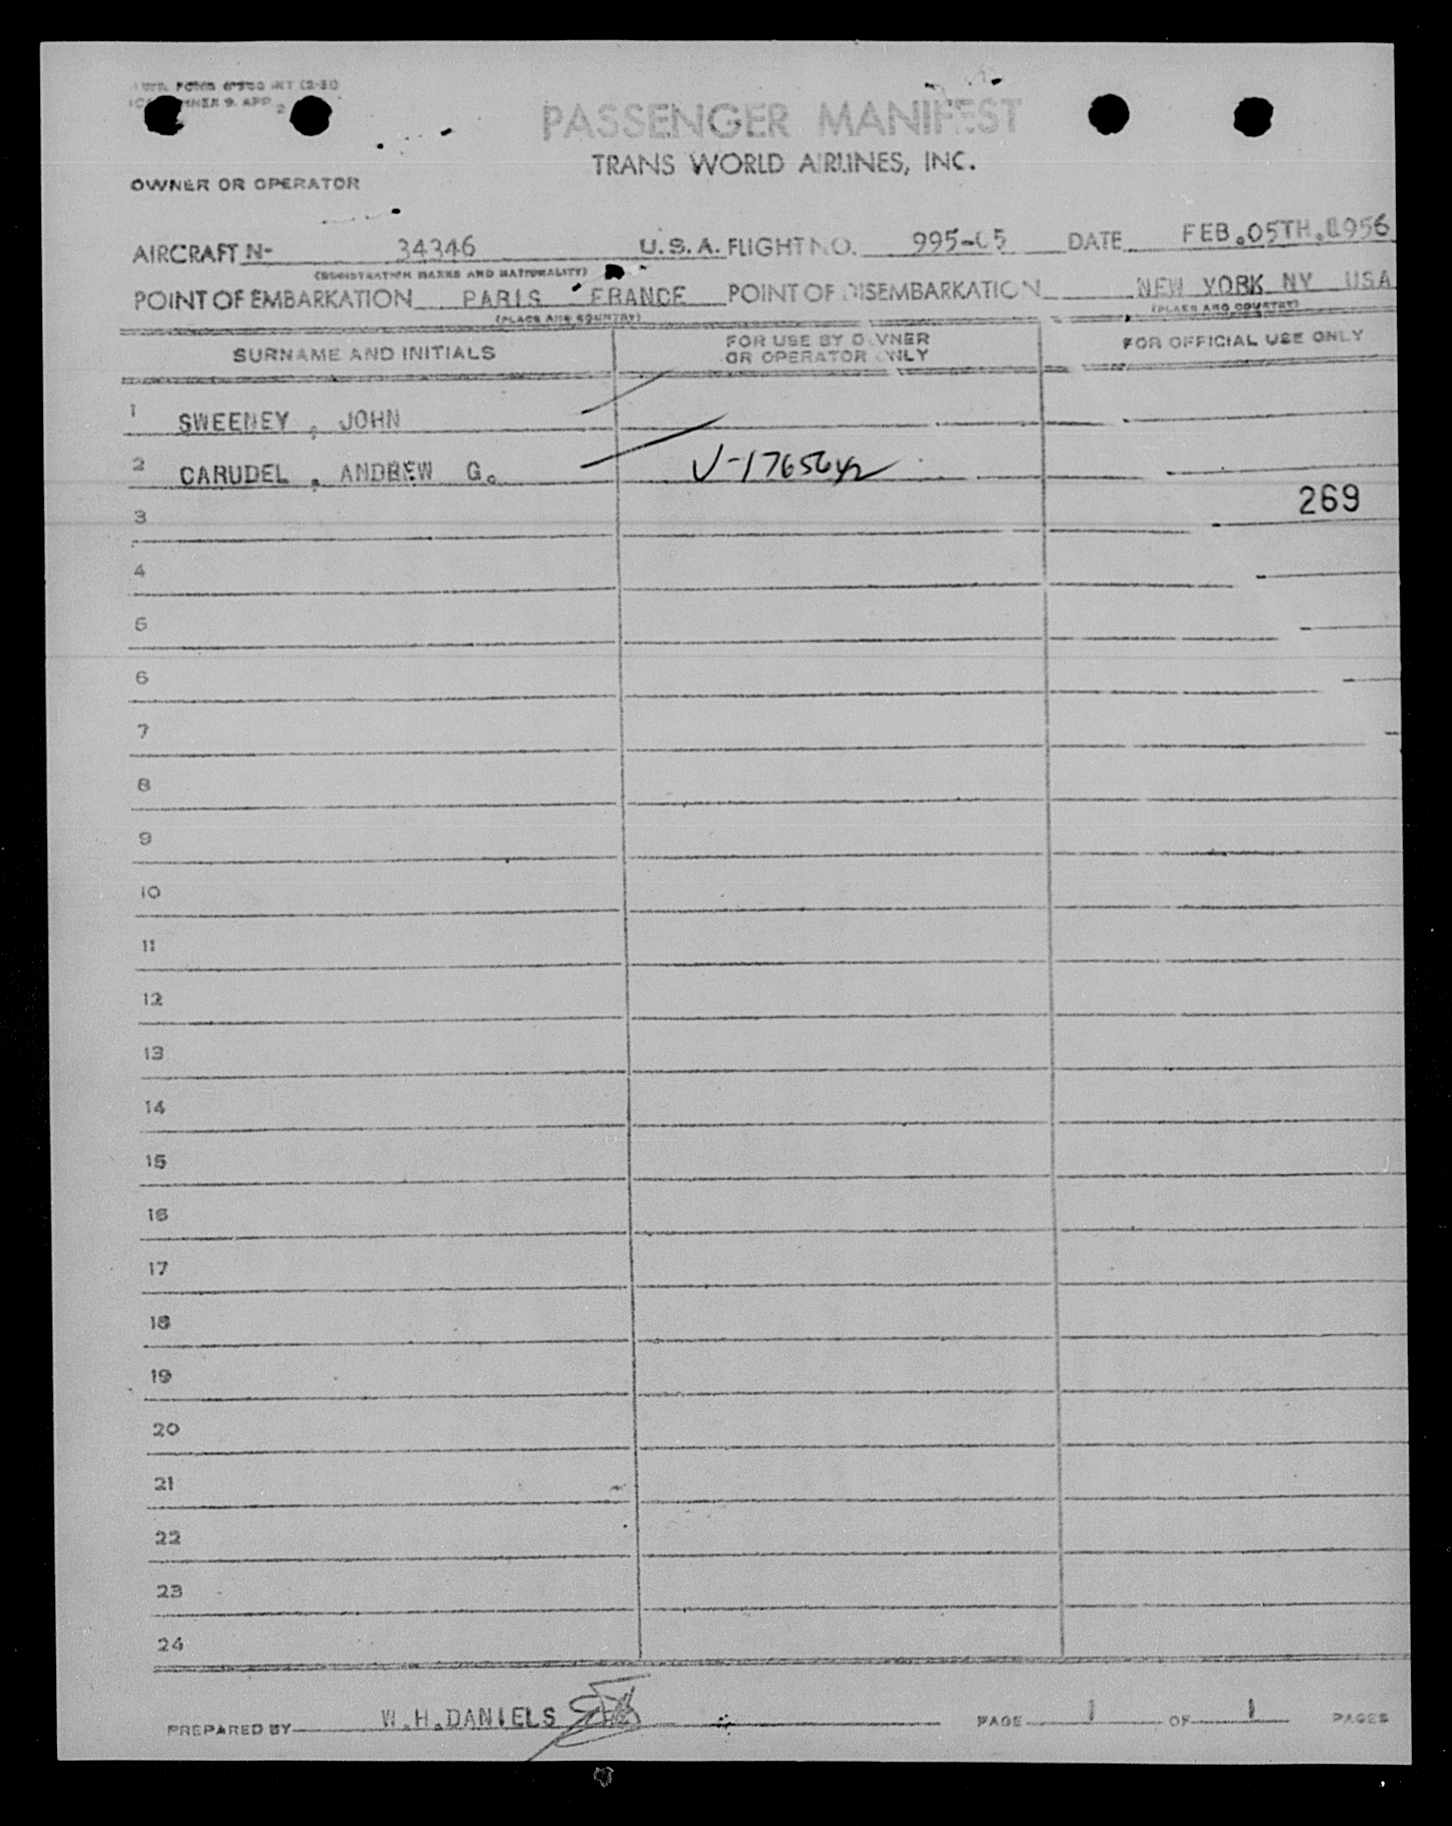 PASSENGER MANIFEST
TRANS WORLD AIRLINES, INC.
OWNER OR OPERATOR
AIRCRAFT N- 34346 U.S.A. FLIGHT NO. 995-05 DATE FEB.05TH.1956
(REGISTRATION MARKS AND NATIONALITY)
POINT OF EMBARKATION PARIS FRANCE POINT OF DISEMBARKATION NEW YORK NY USA
(PLACE AND COUNTRY) (PLACE AND COUNTRY)
SURNAME AND INITIALS FOR USE BY OWNER OR OPERATOR ONLY FOR OFFICIAL USE ONLY
1 SWEENEY , JOHN
2 CARUDEL , ANDREW G. V-1765642
269
3
4
5
6
7
8
9
10
11
12
13
14
15
16
17
18
19
20
21
22
23
24
PREPARED BY W.H.DANIELS PAGE 1 OF 1 PAGES